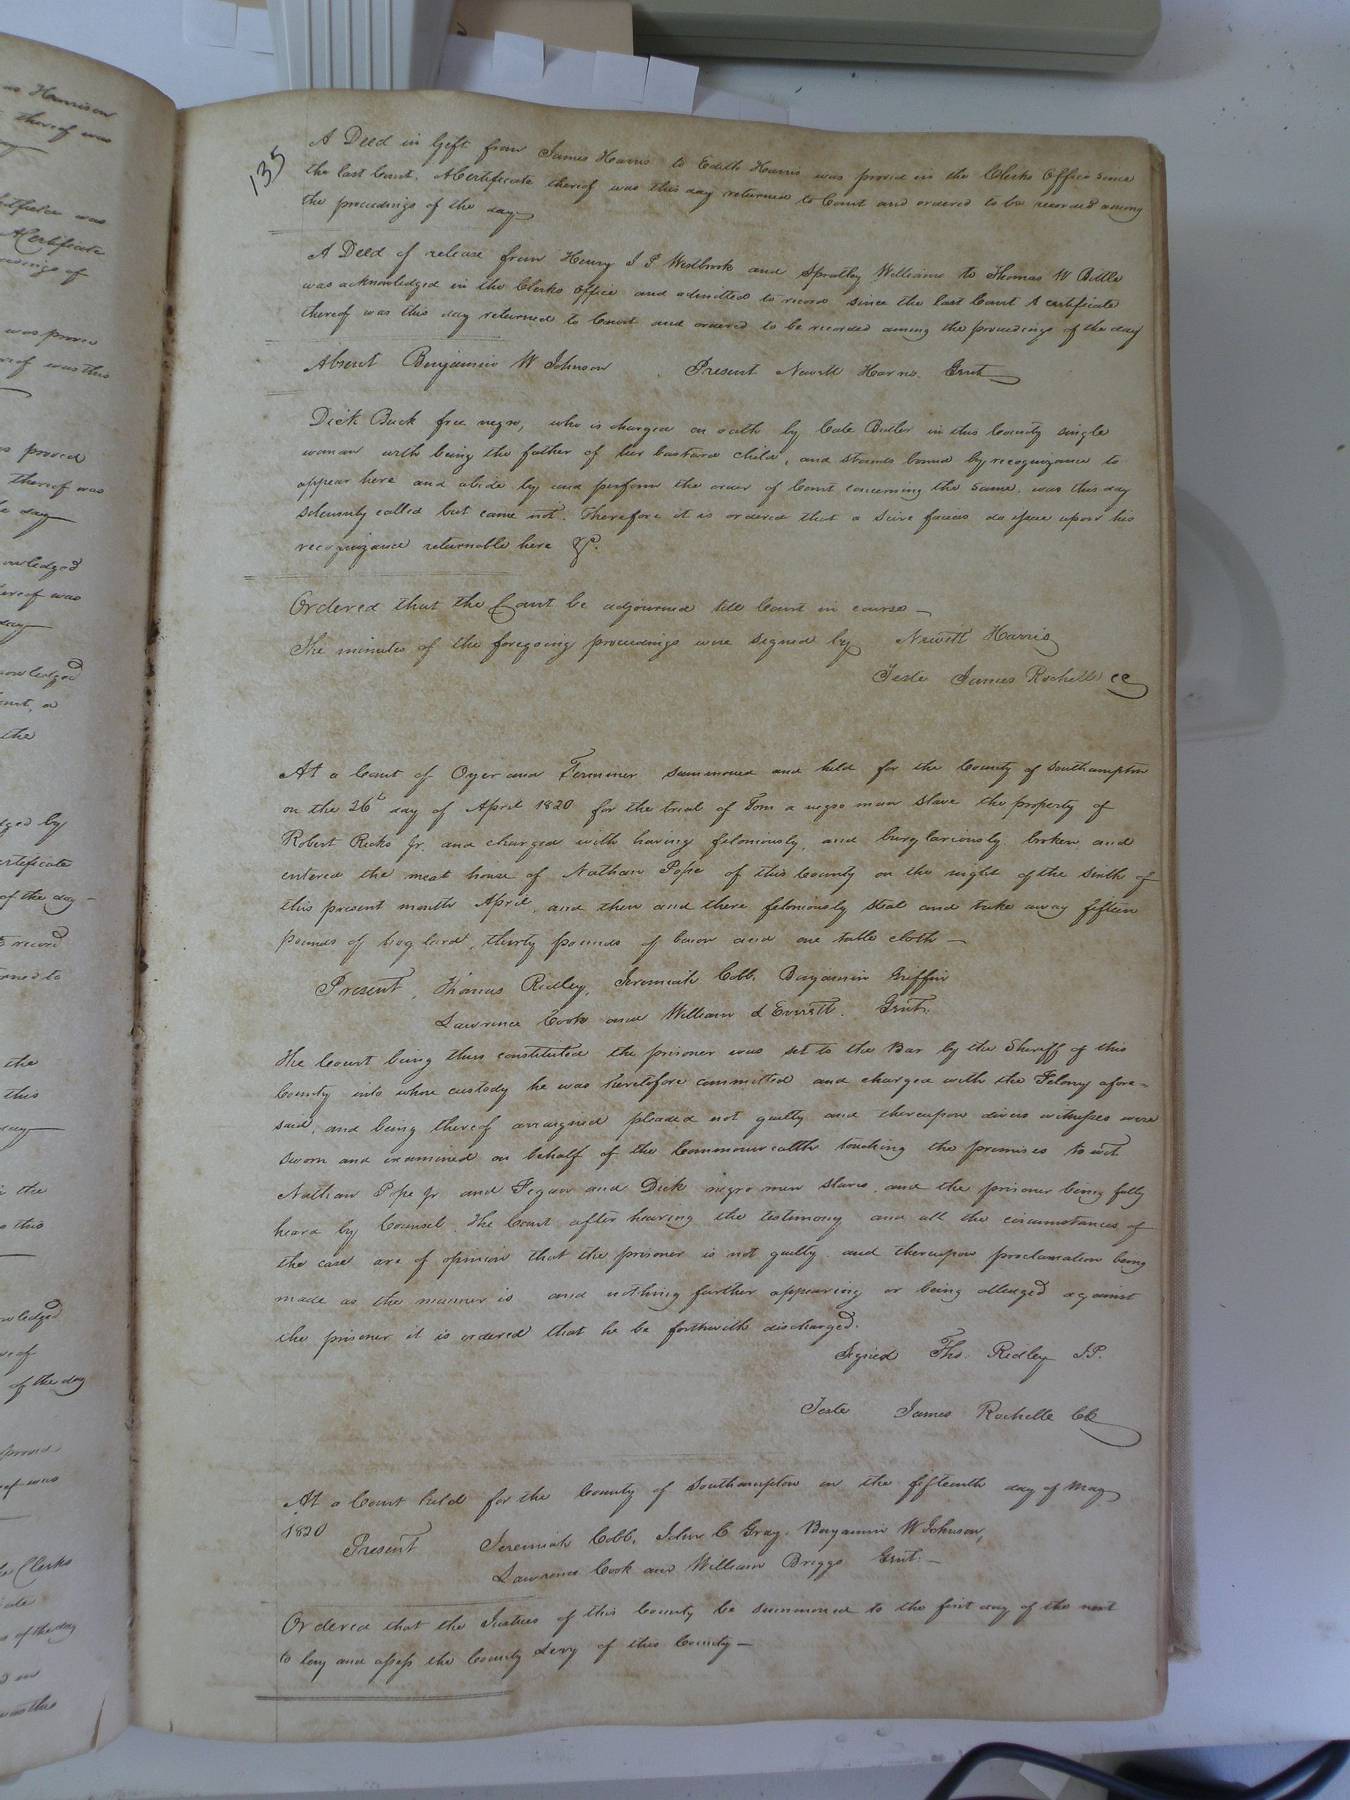 135
A Deed in Gift from James Harris to Edith Harris was proved in the Clerks Office since
the last Court. A Certificate thereof was this day returned to Court and ordered to be recorded among
the proceedings of the day
A Deed of release from Henry J P Westbrook and Spratley Williams to Thomas W Bittle
was acknowledged in the Clerks Office and admitted to record since the last Court A certificate
thereof was this day returned to Court and ordered to be recorded among the proceedings of the day
Absent Benjamin W Johnson Present Newitt Harris Gent
Dick Buck free negro, who is charged on oath by Cate Butler in this County single
woman with being the father of her bastard child, and stands bound by recognizance to
appear here and abide by and perform the order of Court concerning the same, was this day
solemnly called but came not. Therefore it is ordered that a scire facias do issue upon his
recognizance returnable here &c.
Ordered that the Court be adjourned till Court in course
The minutes of the foregoing proceedings were signed by Newitt Harris
Teste James Rochelle CC
At a Court of Oyer and Terminer summoned and held for the County of Southampton
on the 26th day of April 1820 for the trial of Tom a negro man slave the property of
Robert Ricks Jr. and charged with having feloniously, and burglariously broken and
entered the meat house of Nathan Pope of this County on the night of the sixth of
this present month April, and then and there feloniously steal and take away fifteen
pounds of hog lard, thirty pounds of bacon and one table cloth
Present, Thomas Ridley, Jeremiah Cobb, Benjamin Griffin
Lawrence Cook and William D Everett. Gent.
The Court being thus constituted the prisoner was set to the Bar by the Sheriff of this
County into whose custody he was heretofore committed and charged with the Felony afore-
said, and being thereof arraigned pleaded not guilty and thereupon divers witnesses were
sworn and examined on behalf of the Commonwealth touching the premises to wit
Nathan Pope Jr and and Dick negro men slaves, and the prisoner being fully
heard by Counsel. The Court after hearing the testimony and all the circumstances of
the case are of opinion that the prisoner is not guilty. and thereupon proclamation being
made as the manner is and nothing further appearing or being alledged against
the prisoner it is ordered that he be forthwith discharged.
Signed Ths. Ridley J.P.
Teste James Rochelle Clk
At a Court held for the County of Southampton on the fifteenth day of May
1820 Present Jeremiah Cobb, John C Gray, Benjamin W Johnson,
Lawrence Cook and William Briggs Gent.
Ordered that the Justices of this County be summoned to the first day of the next
to lay and assess the County Levy of this County